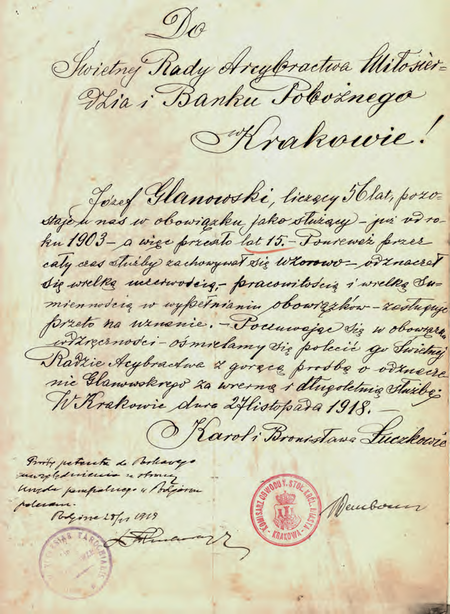 Do
Świetnej Rady Arcybractwa Miłosier-
dzia i Banku Pobożnego
w Krakowie!
Józef Glanowski, liczący 56 lat, pozo-
staje u nas w obowiązku jako służący – już od ro-
ku 1903 – a więc przeszło lat 15. – Ponieważ przez
cały czas służby zachowywał się wzorowo – odznaczał
się wielką uczciwością, – pracowitością i wielką su-
miennością w wypełnianiu obowiązków – zasługuje
przeto na uznanie. – Poczuwając się w obowiązku
wdzięczności – ośmielamy się polecić go Świetnej
Radzie Arcybractwa z gorącą prośbą o odznacze-
nie Glanowskiego za wierną i długoletnią służbę.
W Krakowie dnia 27 listopada 1918. –
Karol i Bronisława Łuczkowie
Prośbę petenta do
uwzględnienia
w Podgórzu
polecam.
Podgórze 1918
KOMISARZ OBWODU V. STOŁ. KRÓL. MIASTA
KRAKOWA